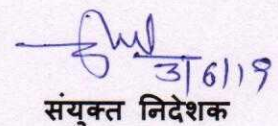 3/6/19
संयुक्त निदेशक